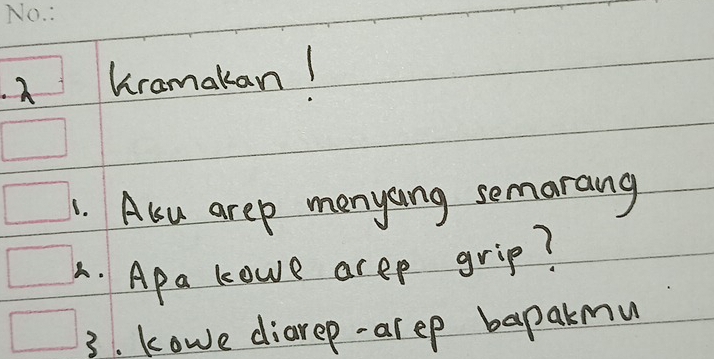 No.:
2 Kramakan!
1. Aku arep menyang semarang
2. Apa kowe arep grip?
3. Kowe diarep-arep bapakmu